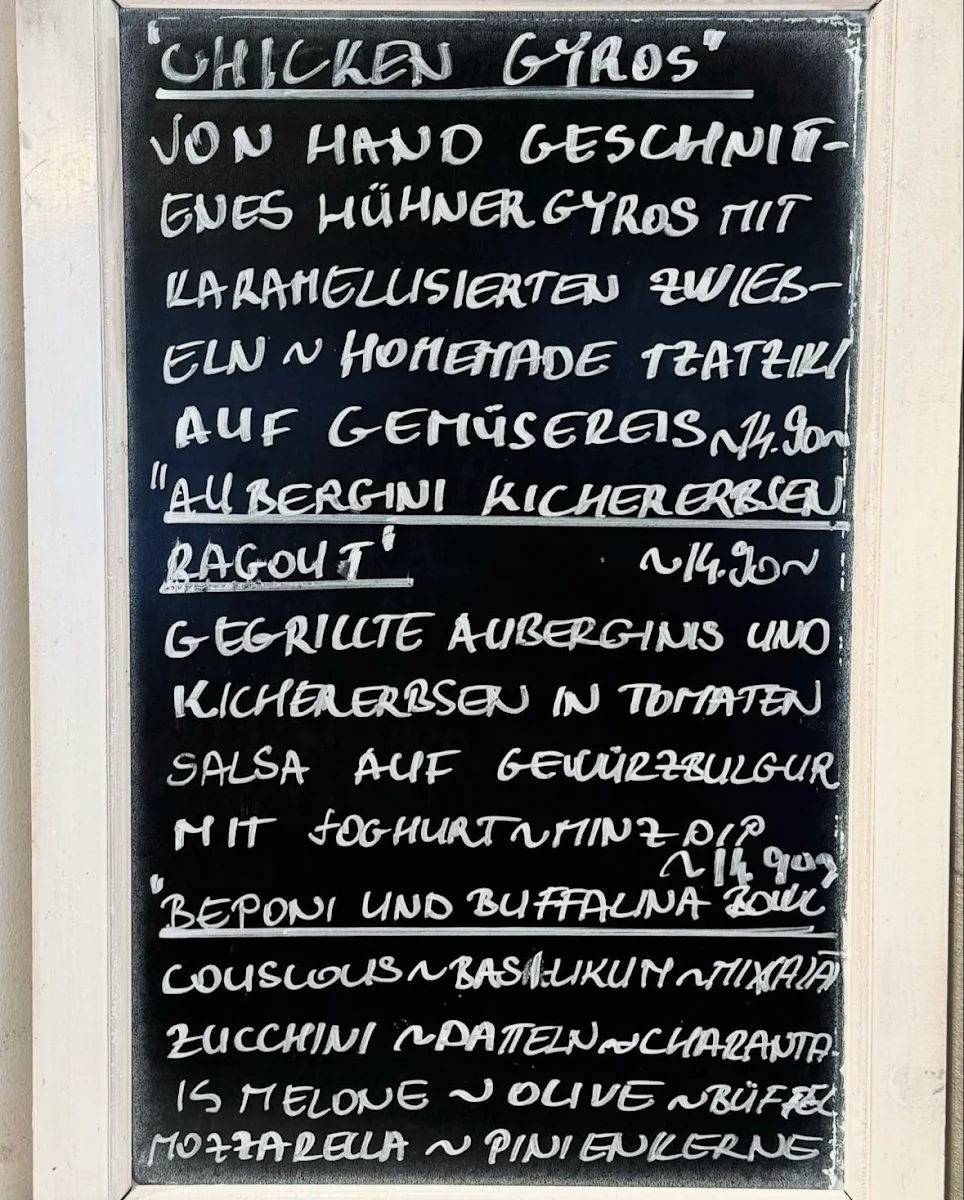 "CHICKEN GYROS"
VON HAND GESCHNITT-
ENES HÜHNERGYROS MIT
KARAMELLISIERTEN ZWIEB-
ELN ~ HOMEMADE TZATZIKI
AUF GEMÜSEREIS ~14.90~
"AUBERGINI KICHERERBSEN
RAGOUT" ~14.90~
GEGRILLTE AUBERGINIS UND
KICHERERBSEN IN TOMATEN
SALSA AUF GEWÜRZBULGUR
MIT JOGHURT~MINZ DIP
~14.90~
"BEPONI UND BUFFALINA BOWL"
COUSCOUS~BASILIKUM~MIXSALAT
ZUCCHINI ~DATTELN~CHARANTA
IS MELONE ~ OLIVE ~BÜFFEL
MOZZARELLA ~ PINIENKERNE